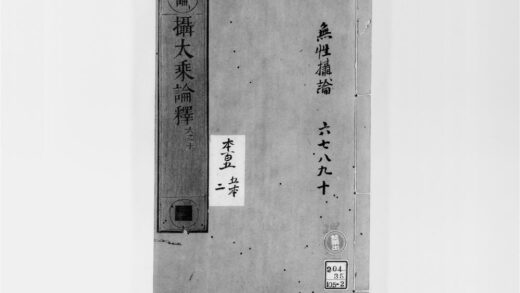 無性攝論 六七八九十
攝大乘論釋 六之十
五本
二
204
35
105-2